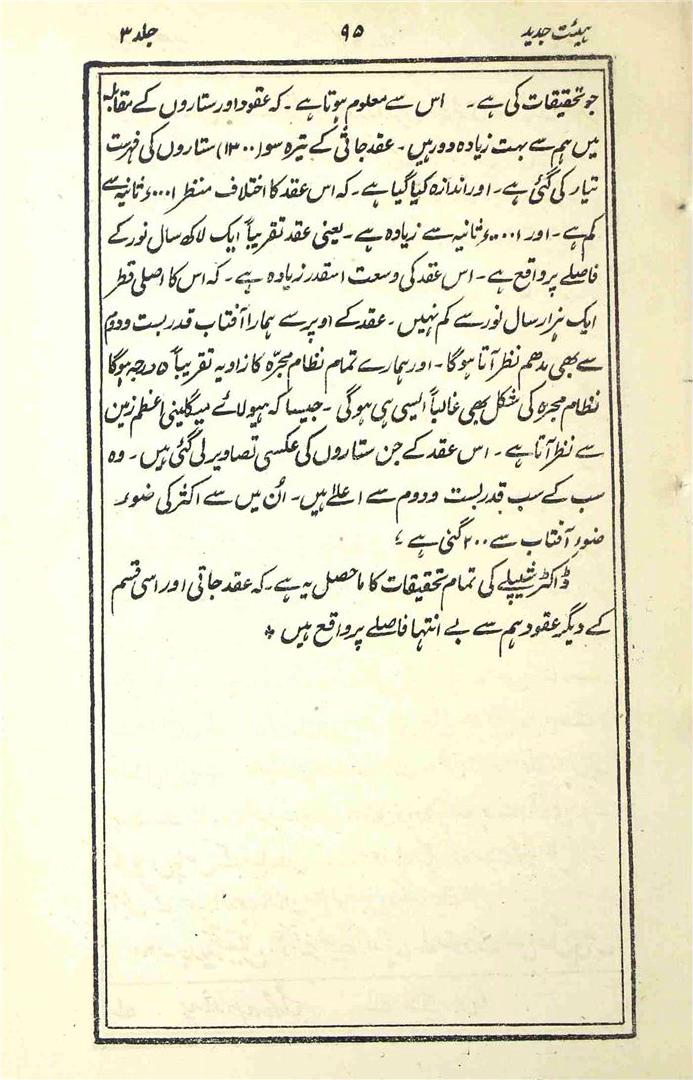 ہیئت جدید ۹۵ جلد ۳
جو تحقیقات کی ہے۔ اس سے معلوم ہوتا ہے۔ کہ عقود اور ستاروں کے مقابلہ
میں ہم سے بہت زیادہ دور ہیں۔ عقد جاثی کے تیرہ سو (۱۳۰۰) ستاروں کی فہرست
تیار کی گئی ہے۔ اور اندازہ کیا گیا ہے۔ کہ اس عقد کا اختلاف منظر ۰۰۰۱ء ثانیہ سے
کم ہے۔ اور ۰۰۰۰۱ء ثانیہ سے زیادہ ہے۔ یعنی عقد تقریباً ایک لاکھ سال نور کے
فاصلے پر واقع ہے۔ اس عقد کی وسعت اسقدر زیادہ ہے۔ کہ اس کا اصلی قطر
ایک ہزار سال نور سے کم نہیں۔ عقد کے اوپر سے ہمارا آفتاب قدر بست و دوم
سے بھی مدھم نظر آتا ہوگا۔ اور ہمارے تمام نظام مجرّہ کا زاویہ تقریباً ۵ درجہ ہوگا
نظام مجرہ کی شکل بھی غالباً ایسی ہی ہوگی۔ جیسا کہ ہیولائے میگلینی اعظم زمین
سے نظر آتا ہے۔ اس عقد کے جن ستاروں کی عکسی تصاویر لی گئی ہیں۔ وہ
سب کے سب قدر بست و دوم سے اعلےٰ ہیں۔ اُن میں سے اکثر کی ضوء
ضوء آفتاب سے ۲۰۰ گنی ہے ؛
ڈاکٹر شیپلے کی تمام تحقیقات کا ماحصل یہ ہے۔ کہ عقد جاثی اور اسی قسم
کے دیگر عقود ہم سے بے انتہا فاصلے پر واقع ہیں *